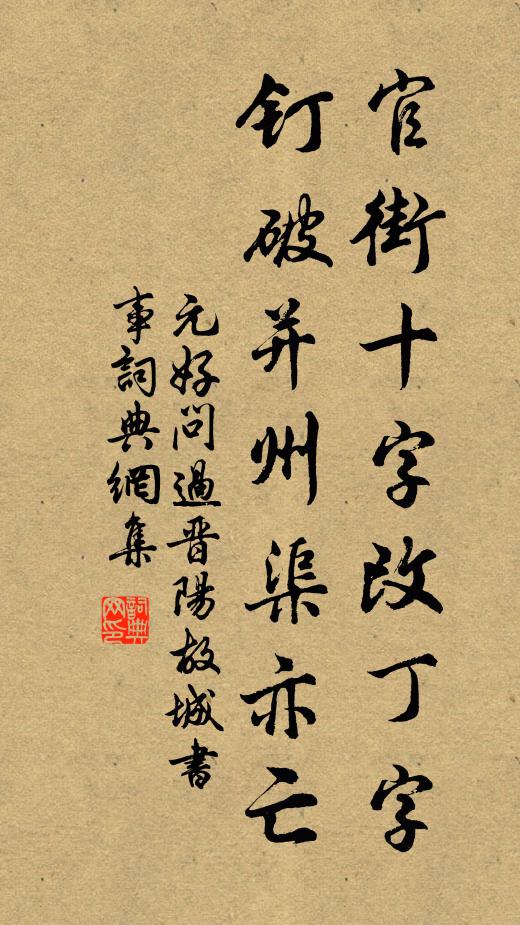 官街十字改丁字
釘破并州渠亦亡
元好問過晋陽故城書
事詞典網集
詞典
网印